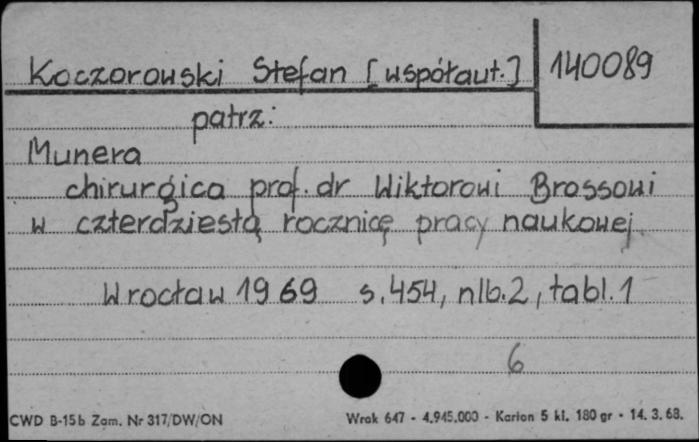 Koczorowski Stefan [współaut.] 140089
patrz:
Munera
chirurgica prof. dr Wiktorowi Brossowi
w czterdziestą rocznicę pracy naukowej
Wrocław 1969 s. 454, nlb. 2, tabl. 1
6
CWD B-15b Zam. Nr 317/DW/ON Wrak 647 - 4.945.000 - Karton 5 kl. 180 gr - 14. 3. 68.